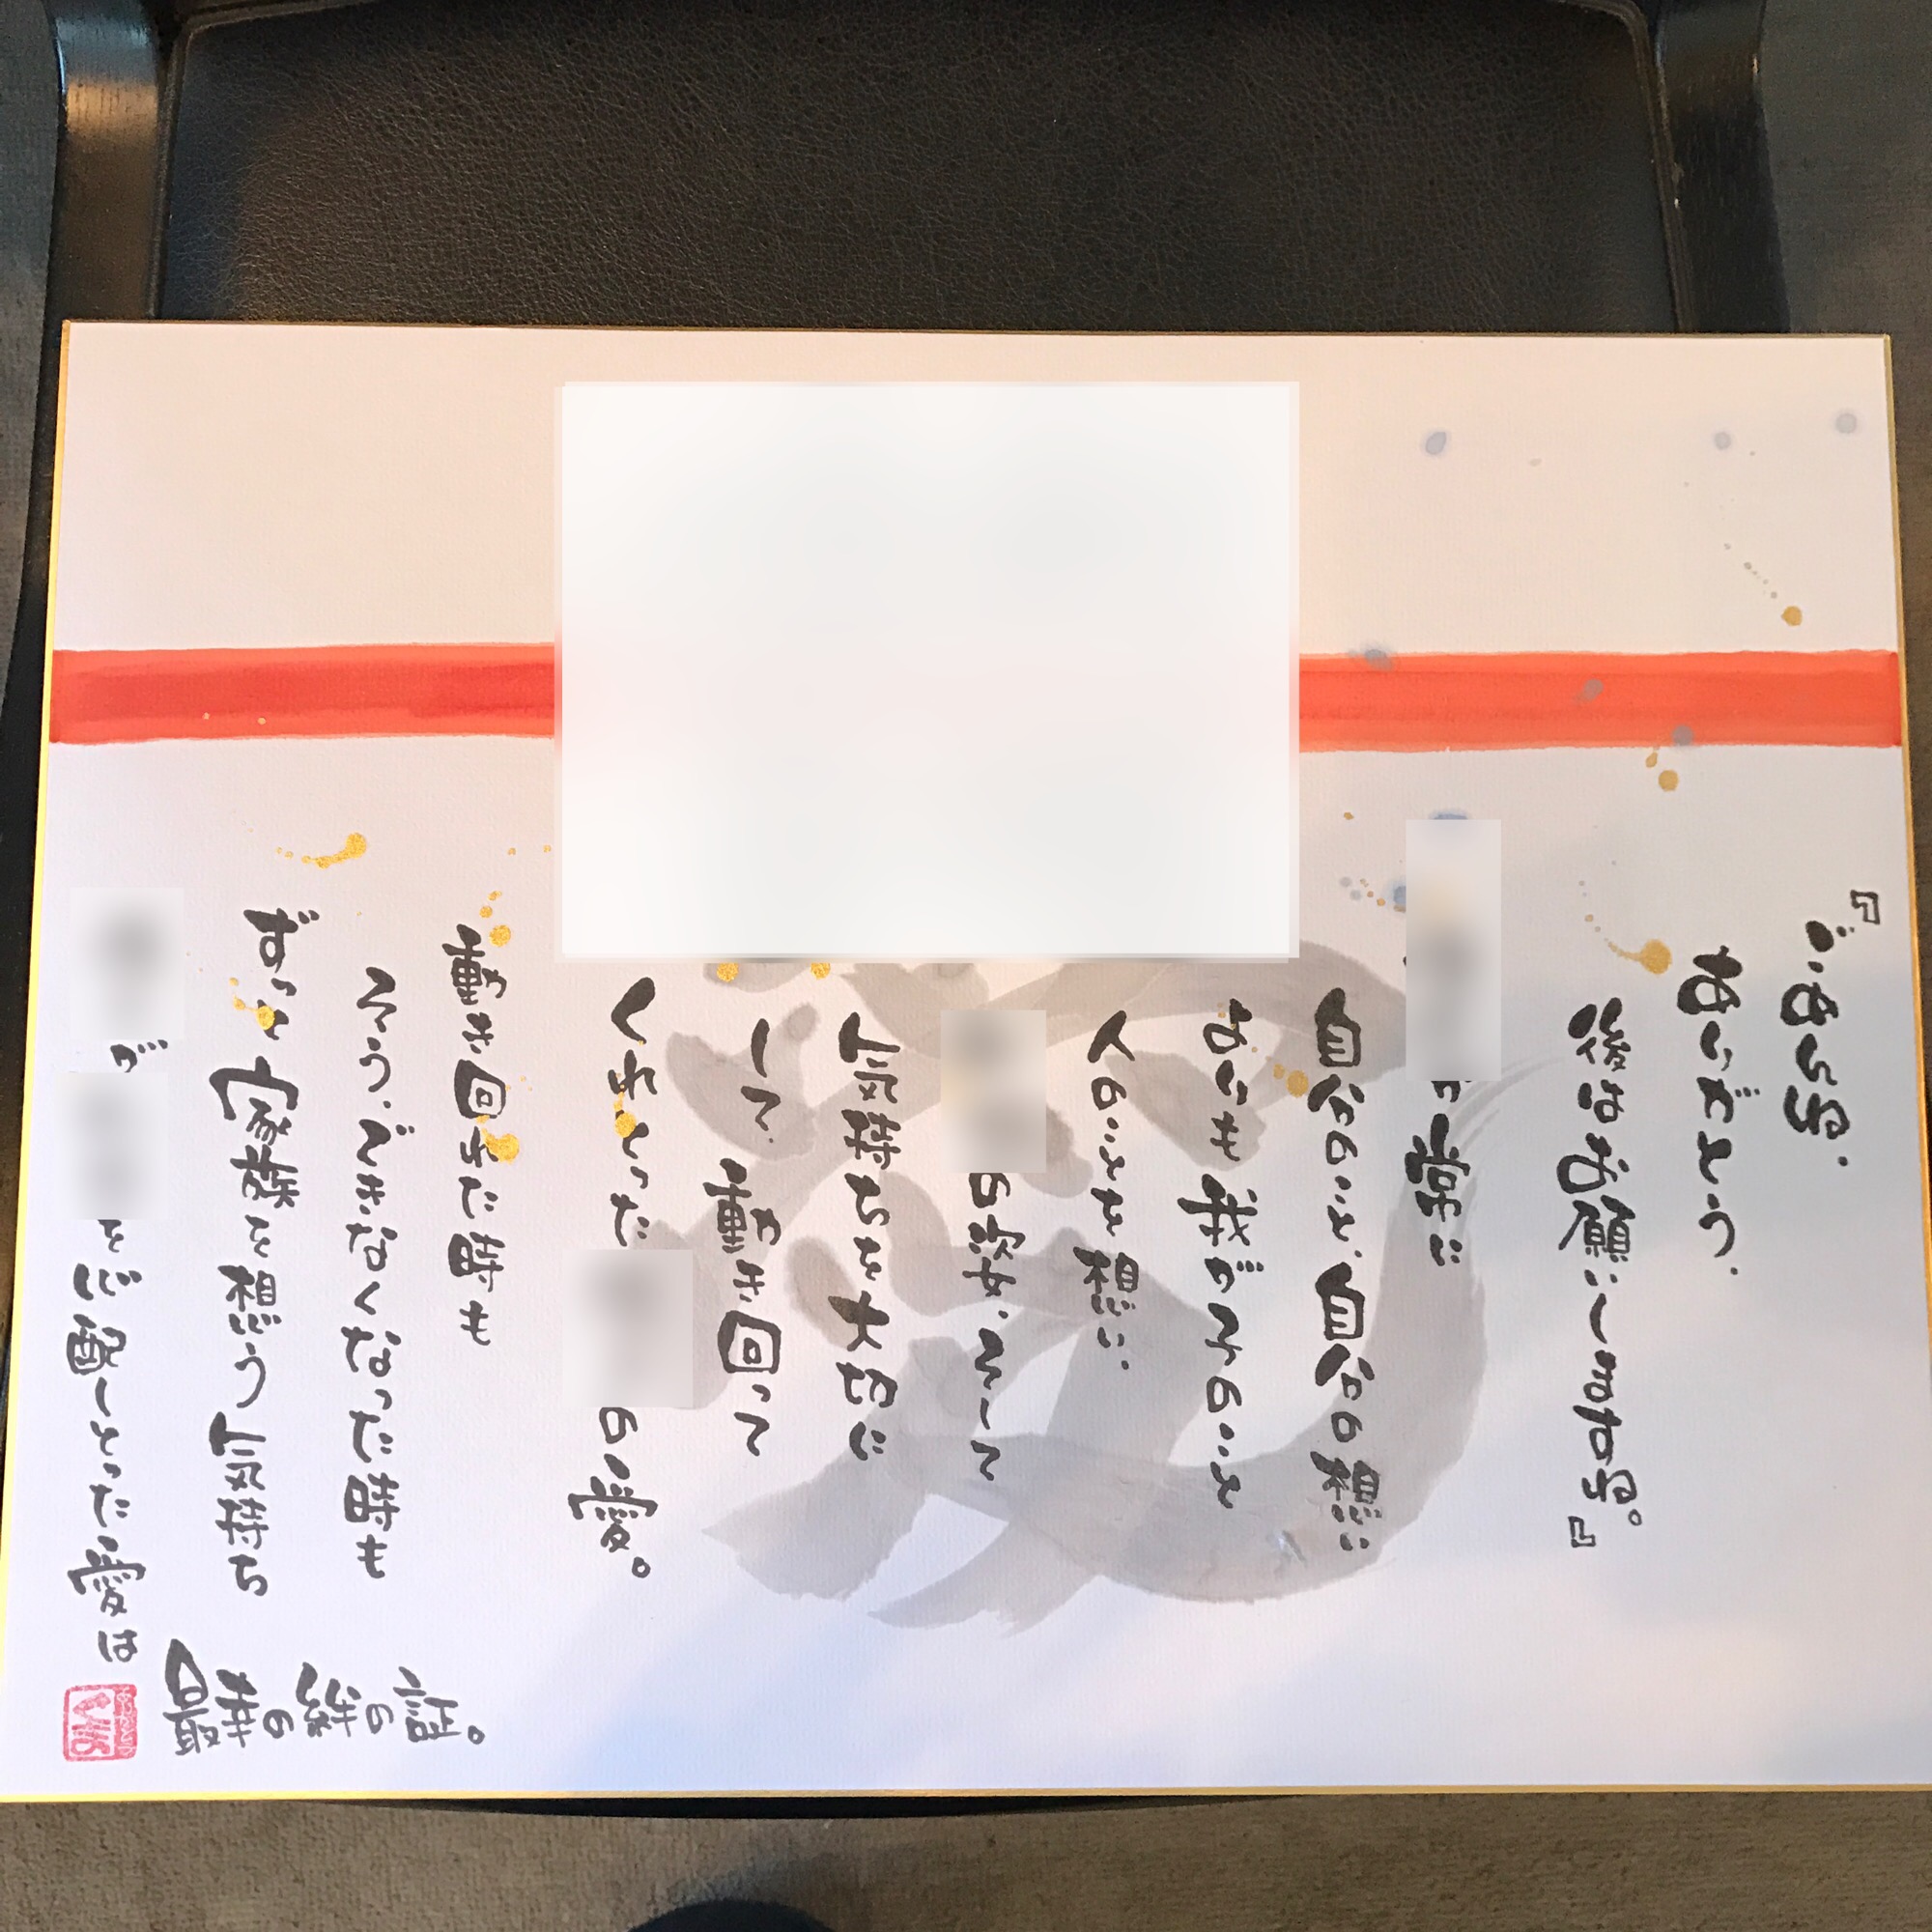 『ごめんね、
ありがとう、
後はお願いしますね。』
常に
自分のこと、自分の想い
よりも我が子のこと
人のことを想い、
の姿、そして
気持ちを大切に
して、動き回って
くれとった
の愛。
動き回れた時も
そう、できなくなった時も
ずっと家族を想う気持ち
が
を心配しとった愛は
最幸の絆の証。